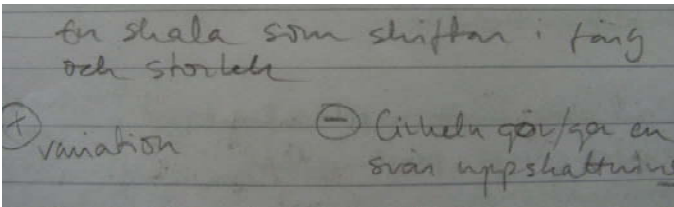 En skala som skiftar i färg
och storlek
+ variation
− Cirkeln gör/ger en
svår uppskattning